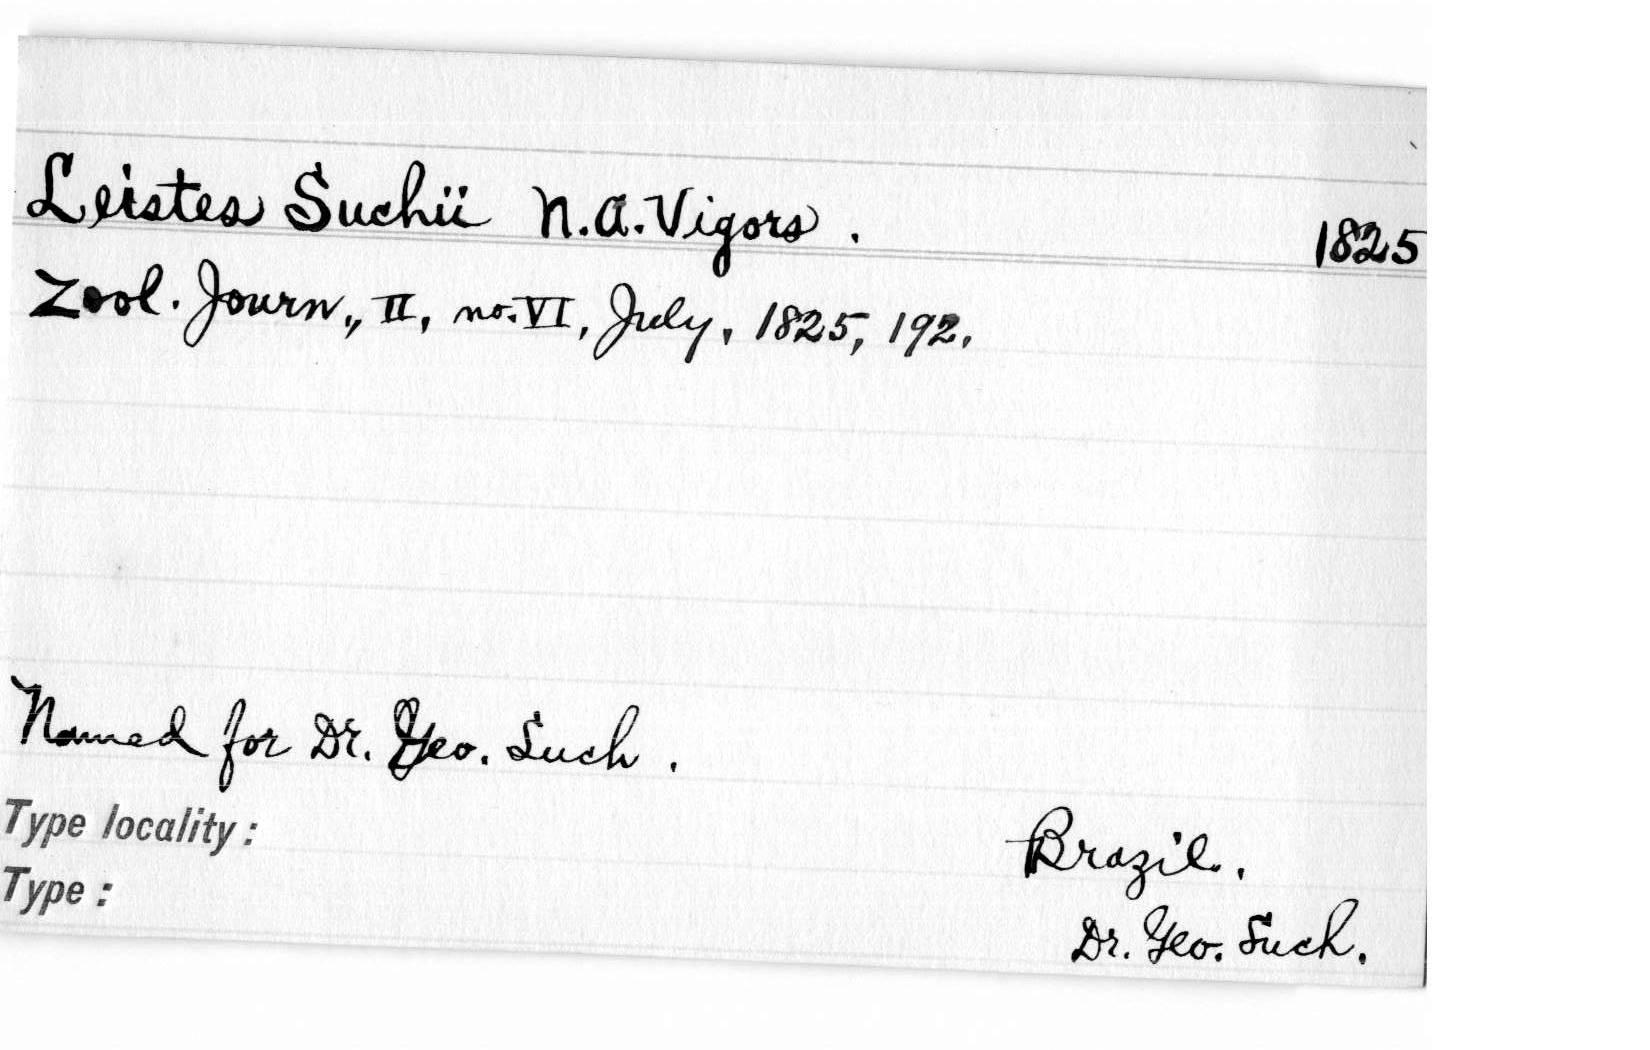 Leistes Suchii N.A. Vigors. 1825
Zool. Journ., II, no. VI, July, 1825, 192.
Named for Dr. Geo. Such.
Type locality: Brazil.
Type: Dr. Geo. Such.